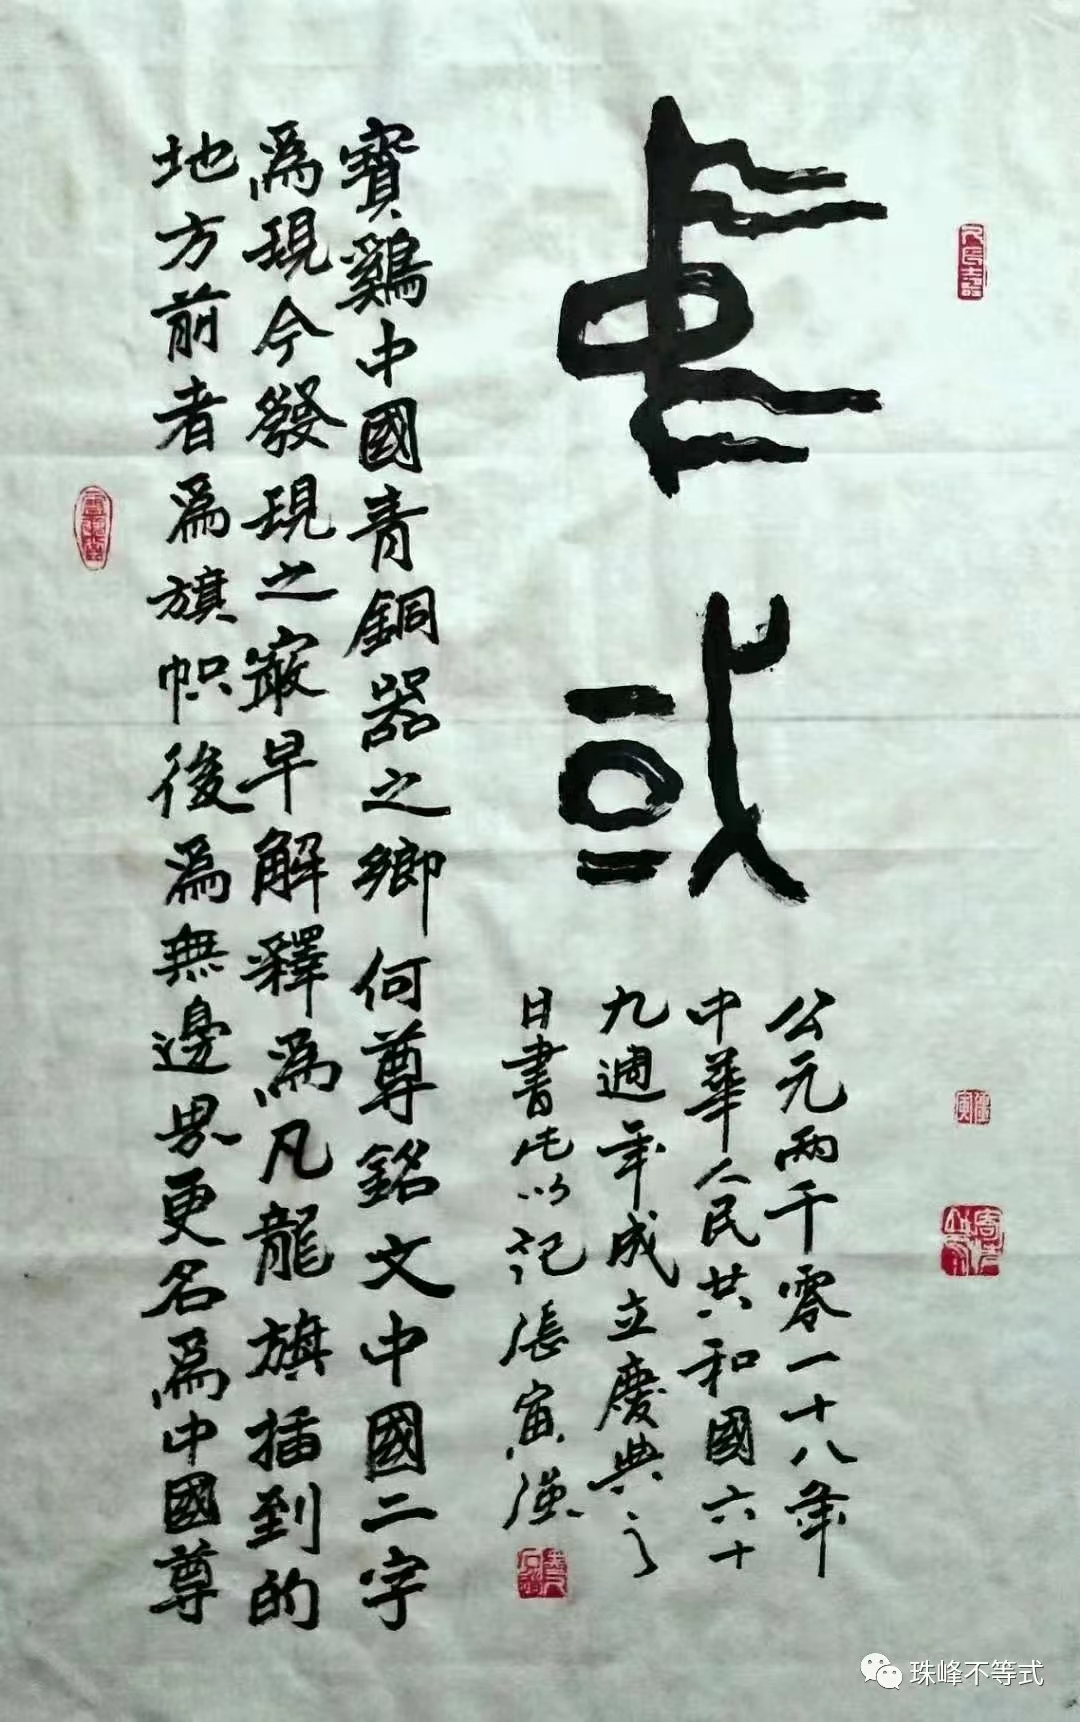 中或
公元两千零一十八年
中華人民共和國六十
九週年成立慶典之
日書此以記張寅漢
寶鷄中國青銅器之鄉何尊銘文中國二字
為現今發現之最早解釋為凡龍旗插到的
地方前者為旗帜後為無邊界更名為中國尊
珠峰不等式